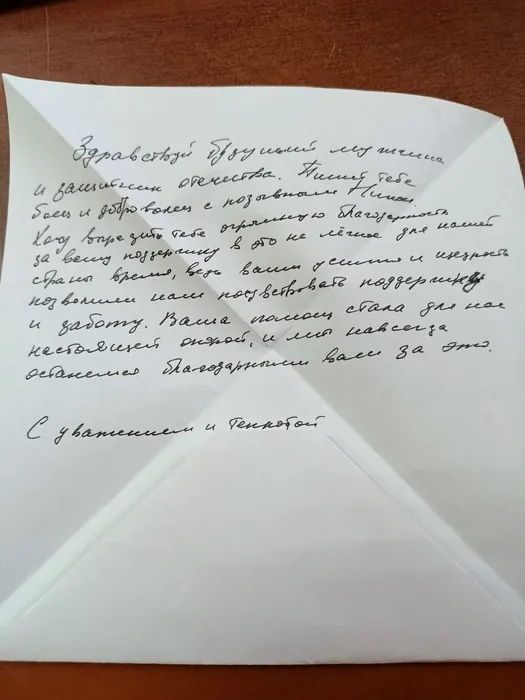 Здравствуй будущий мужчина
и защитник отечества. Пишет тебе
боец и доброволец с позывным
Хочу выразить тебе огромную благодарность
за вашу поддержку в это не лёгкое для нашей
страны время, ведь ваши усилия и щедрость
позволили нам почувствовать поддержку
и заботу. Ваша помощь стала для нас
настоящей опорой, и мы навсегда
останемся благодарными вам за это.
С уважением и теплотой